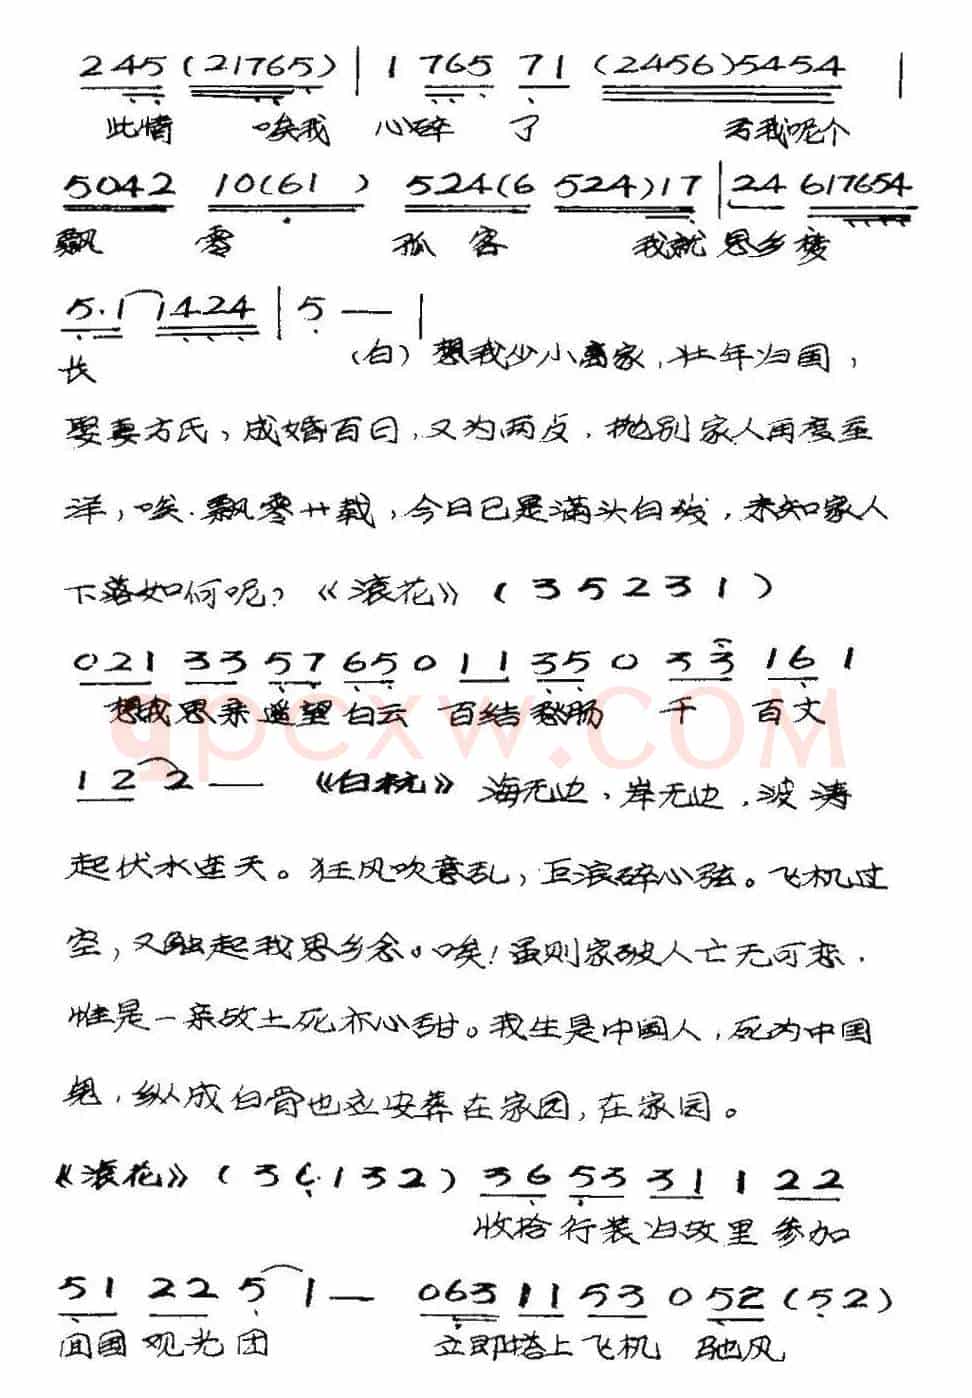 245 (21765) | 1 765 71 (2456)5454 |
此情 唉我 心碎 了 否我呢个
5042 10(61) 524(6 524)17 | 24 617654
飘 零 孤 客 我就 思乡 楼
5.1 1424 | 5 — |
长 (白) 想我少小离家,壮年归国,
娶妻方氏,成婚百日,又为两歺,抛别家人再度重
洋,唉.飘零廿载,今日已是满头白发,未知家人
下落如何呢?《滚花》(35231)
021 33 57 650 11 35 0 33 161
想我思亲遥望白云 百结愁肠 千 百丈
12 2 — 《白杬》海无边,岸无边,波涛
qpcxw.COM
起伏水连天。狂风吹意乱,巨浪碎心弦。飞机过
空,又触起我思乡念。唉!虽则家破人亡无可恋.
惟是一亲故土死亦心甜。我生是中国人,死为中国
鬼,纵成白骨也应安葬在家园,在家园。
《滚花》(36.132) 36 53 31 1 22
收拾行装归故里参加
51 22 5 1 — 063 11 53 0 52 (52)
回国观光团 立即搭上飞机 驰风